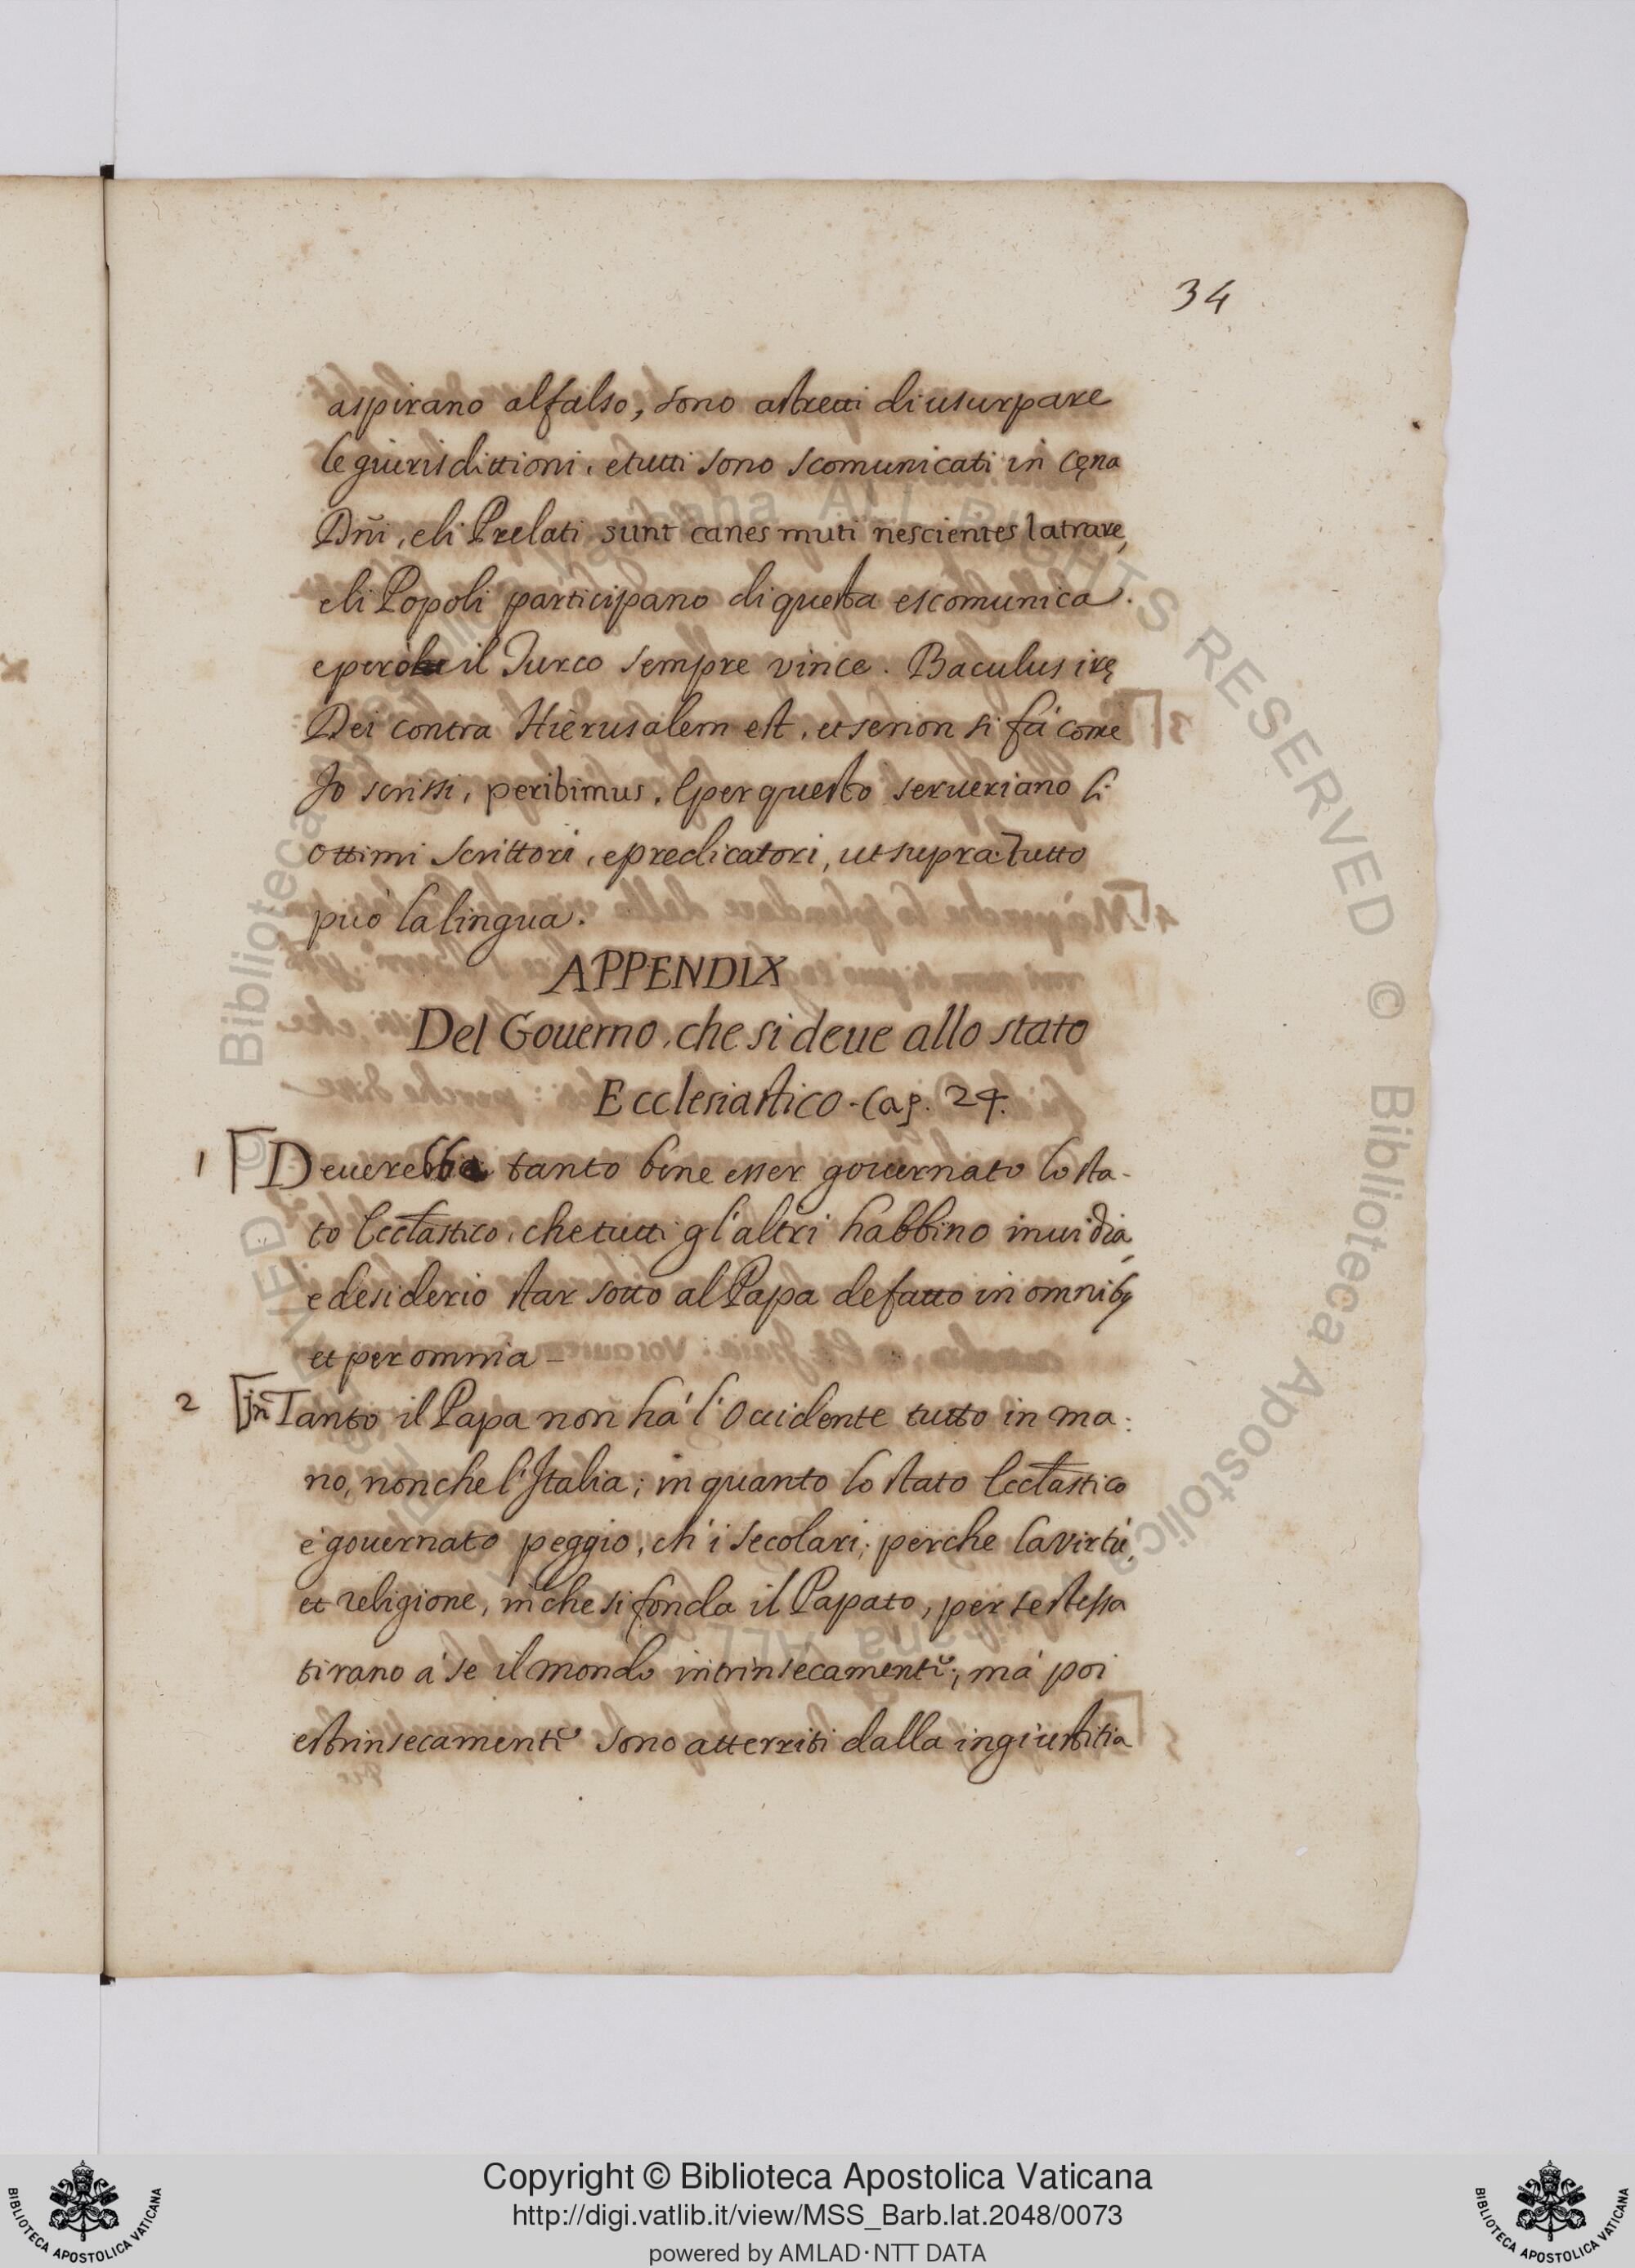 34
aspirano al falso, sono astretti di usurpare
le giurisdittioni, e tutti sono scomunicati in cęna
Dñi, e li Prelati sunt canes muti nescientes latrare,
e li Popoli participano di questa escomunica.
e però il Turco sempre vince. Baculus irę
Dei contra Hierusalem est, et se non si fà come
Jo scrissi, peribimus. E per questo serveriano li
ottimi scrittori, e predicatori, ut supra: Tutto
può la lingua.
APPENDIX
Del Gouerno, che si deue allo stato
Ecclesiastico. Cap. 24.
1 Deuerebbe tanto bene esser gouernato lo sta-
to Eccl̃astico, che tutti gl'altri habbino inuidia,
e desiderio star sotto al Papa de fatto in omnibq
et per omnia -
2 jñ Tanto il Papa non hà l'Occidente tutto in ma:
no, non che l'Italia; in quanto lo stato Eccl̃astico
è gouernato peggio, ch'i secolari; perche la virtù,
et religione, in che si fonda il Papato, per se stessa
tirano à se il mondo intrinsecamentĕ; mà poi
estrinsecamentĕ sono atterriti dalla ingiustitia
Biblioteca Apostolica Vaticana ALL RIGHTS RESERVED © Biblioteca Apostolica Vaticana ALL RIGHTS RESERVED ©
BIBLIOTECA APOSTOLICA VATICANA
Copyright © Biblioteca Apostolica Vaticana
http://digi.vatlib.it/view/MSS_Barb.lat.2048/0073
powered by AMLAD·NTT DATA
BIBLIOTECA APOSTOLICA VATICANA